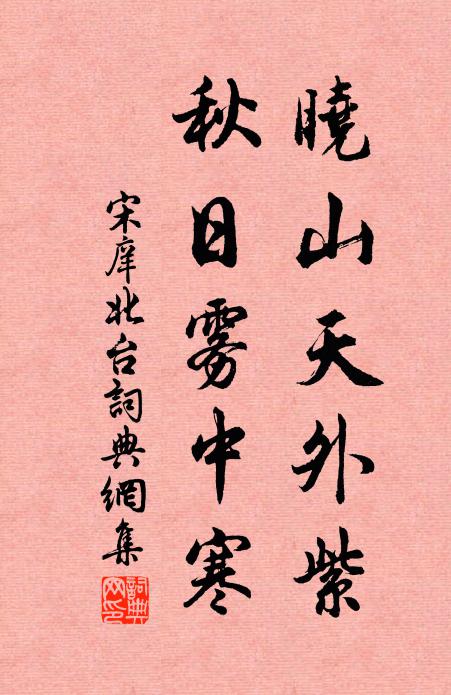 曉山天外紫
秋日雾中寒
宋庠北台詞典網集
詞典网印